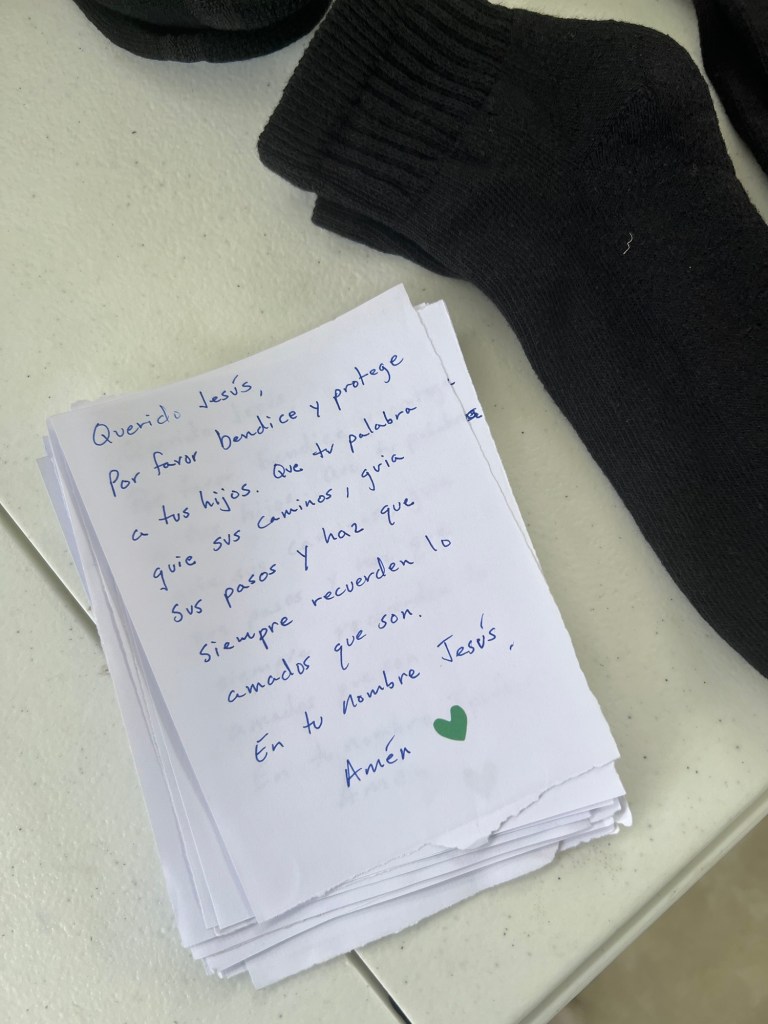 Querido Jesús,
Por favor bendice y protege
a tus hijos. Que tu palabra
guie sus caminos, guia
sus pasos y haz que
siempre recuerden lo
amados que son.
En tu nombre Jesús,
Amén